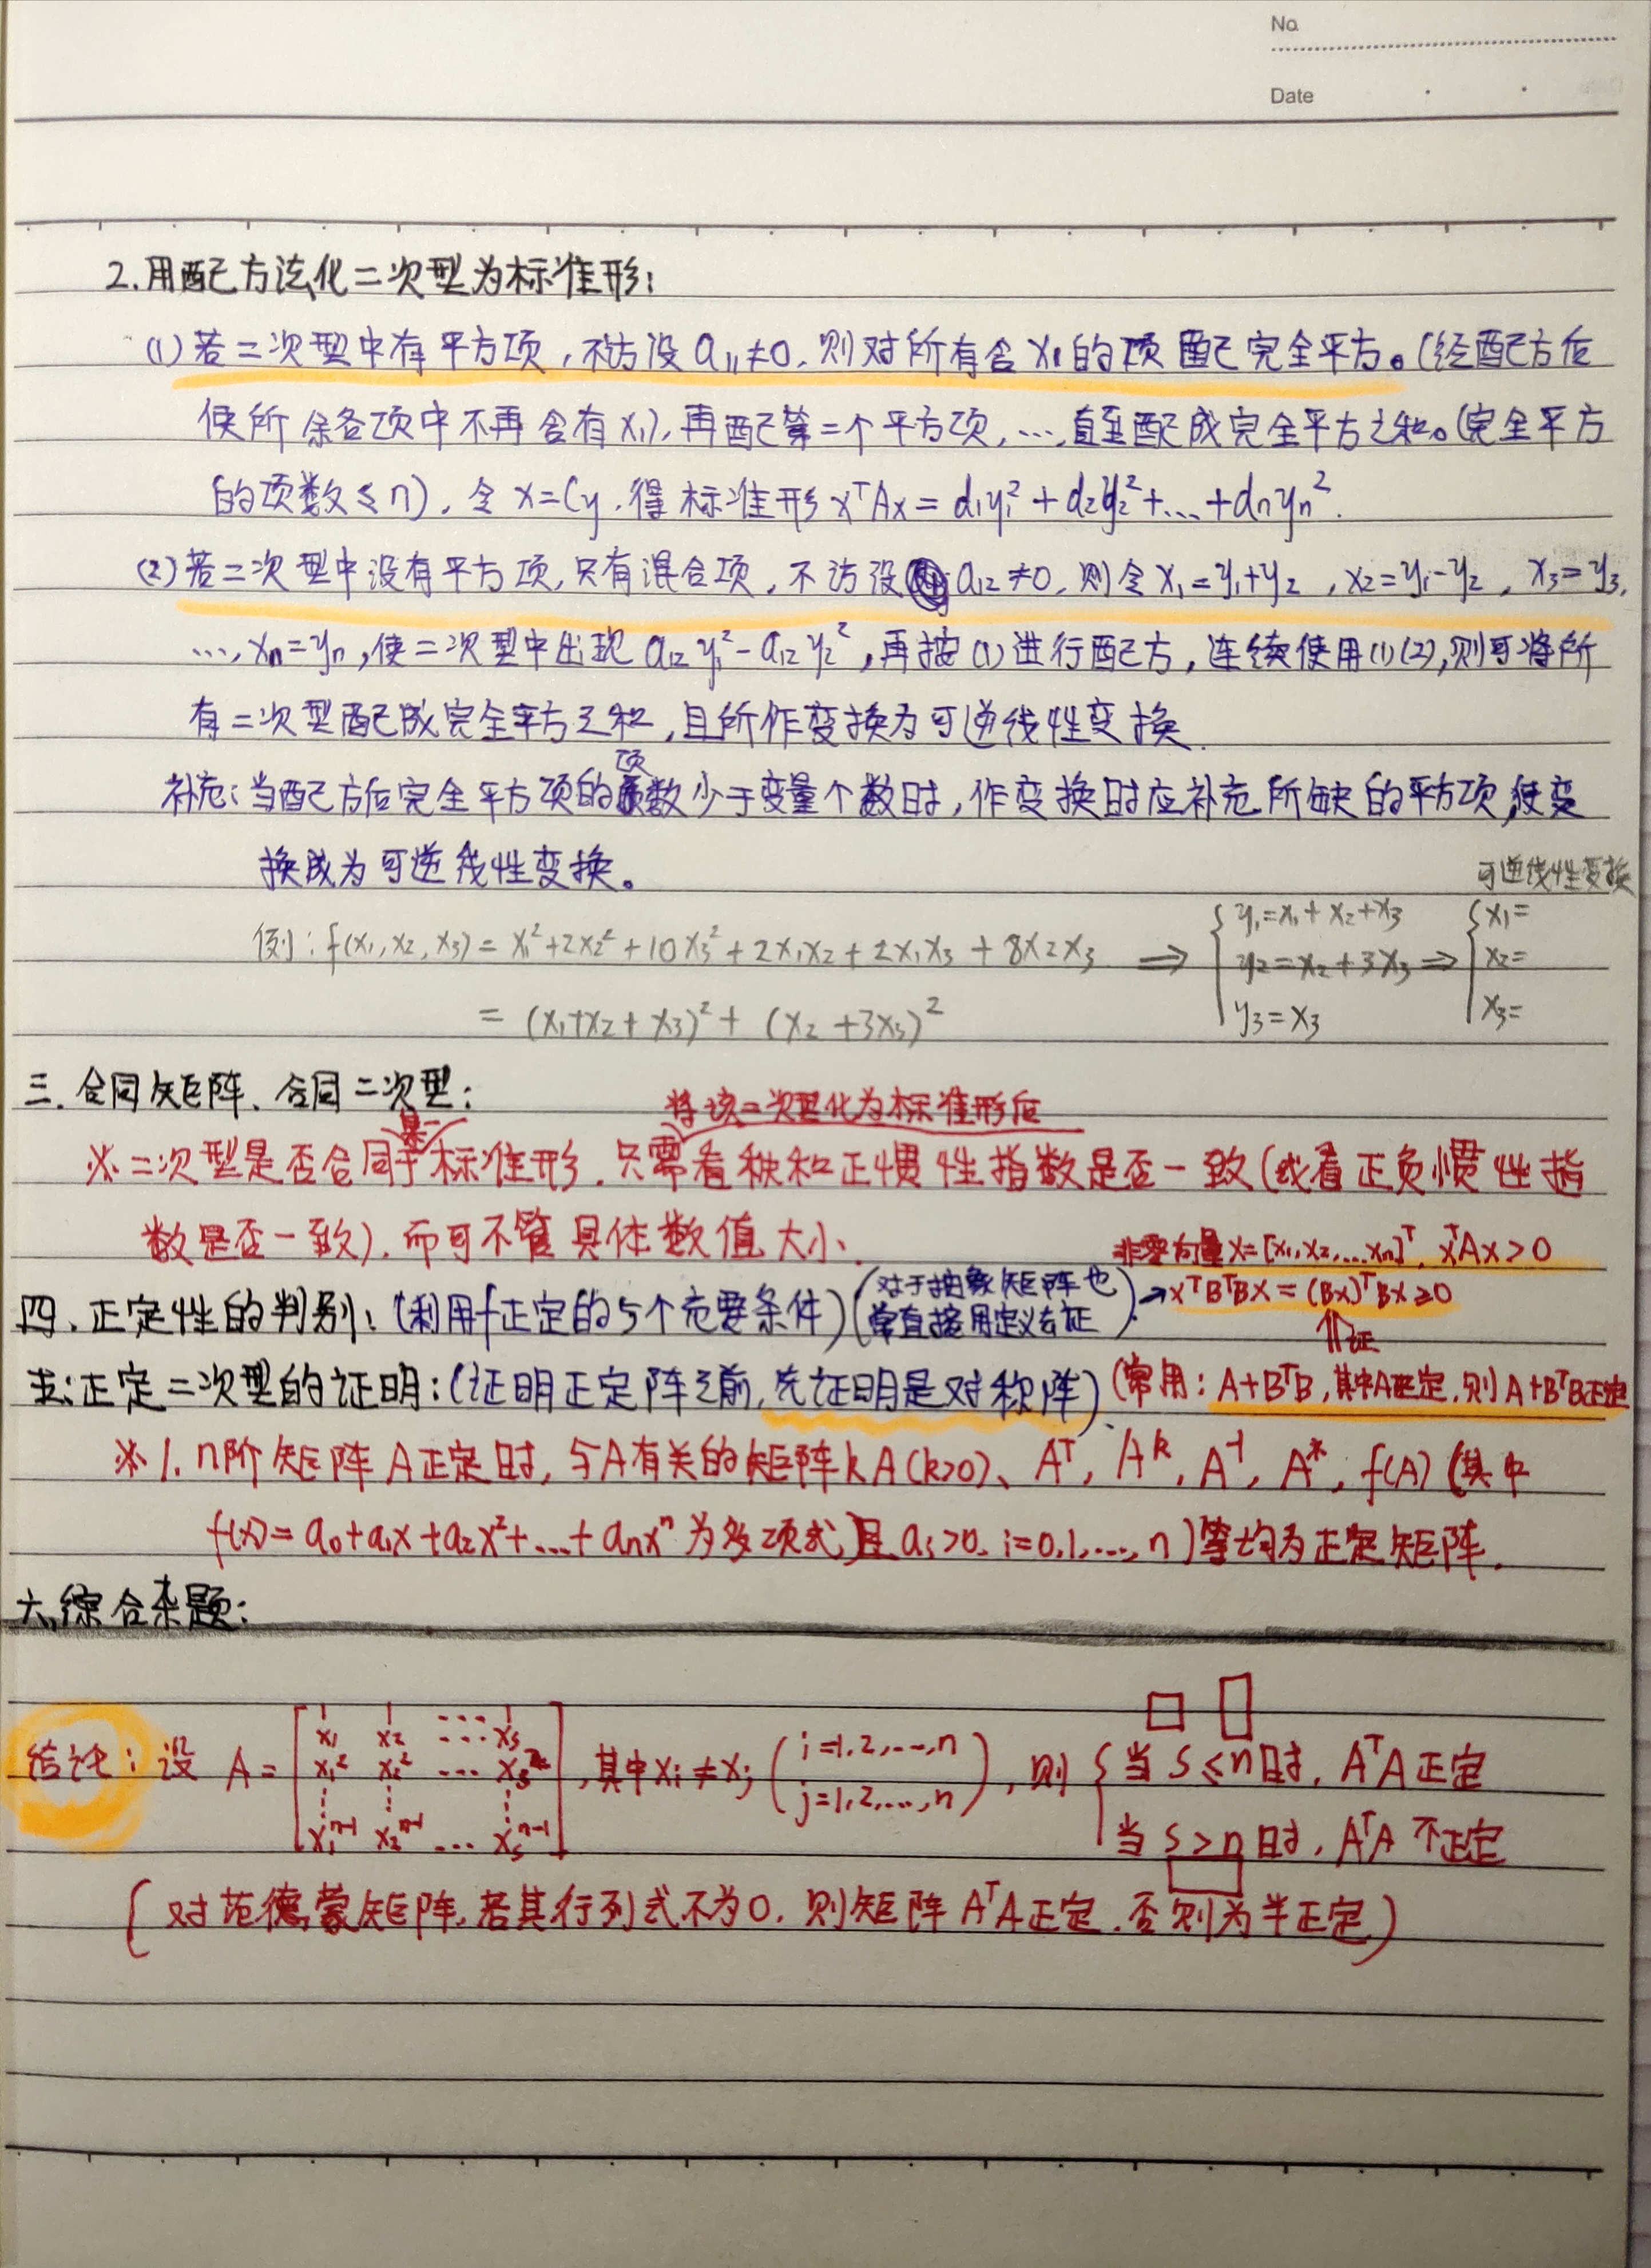 No.
Date
2.用配方法化二次型为标准形:
(1)若二次型中有平方项,不妨设a₁₁≠0,则对所有含x₁的项配完全平方。(经配方后
使所余各项中不再含有x₁),再配第二个平方项,…,直至配成完全平方之和。(完全平方
的项数≤n),令x=Cy,得标准形xᵀAx=d₁y₁²+d₂y₂²+…+dₙyₙ².
(2)若二次型中没有平方项,只有混合项,不访设a₁₂≠0,则令x₁=y₁+y₂,x₂=y₁-y₂,x₃=y₃,
…,xₙ=yₙ,使二次型中出现a₁₂y₁²-a₁₂y₂²,再按(1)进行配方,连续使用(1)(2),则可将所
有二次型配成完全平方之和,且所作变换为可逆线性变换.
补充:当配方后完全平方项的项数少于变量个数时,作变换时应补充所缺的平方项,使变
换成为可逆线性变换。
可逆线性变换
例:f(x₁,x₂,x₃)=x₁²+2x₂²+10x₃²+2x₁x₂+2x₁x₃+8x₂x₃ ⇒ {y₁=x₁+x₂+x₃ y₂=x₂+3x₃ y₃=x₃ ⇒ {x₁= x₂= x₃=
=(x₁+x₂+x₃)²+(x₂+3x₃)²
三.合同矩阵、合同二次型:
将该二次型化为标准形后
※二次型是否合同于某一标准形,只需看秩和正惯性指数是否一致(或看正负惯性指
数是否一致),而可不管具体数值大小.
非零向量x=[x₁,x₂,…xₙ]ᵀ,xᵀAx>0
四.正定性的判别:(利用f正定的5个充要条件)(对于抽象矩阵也常直接用定义去证).→xᵀBᵀBx=(Bx)ᵀBx≥0
⇑证
五:正定二次型的证明:(证明正定阵之前,先证明是对称阵).(常用:A+BᵀB,其中A正定,则A+BᵀB正定
※1.n阶矩阵A正定时,与A有关的矩阵kA(k>0)、Aᵀ,Aᵏ,A⁻¹,A*,f(A)(其中
f(x)=a₀+a₁x+a₂x²+…+aₙxⁿ为多项式,且aᵢ>0,i=0,1,…,n)等均为正定矩阵.
六.综合杂题:
结论:设A=[1 1 … 1
x₁ x₂ … xₛ
x₁² x₂² … xₛ²
⋮ ⋮ ⋮
x₁ⁿ⁻¹ x₂ⁿ⁻¹ … xₛⁿ⁻¹],其中xᵢ≠xⱼ(i=1,2,…,n j=1,2,…,n),则{当s≤n时,AᵀA正定
当s>n时,AᵀA不正定
(对范德蒙矩阵,若其行列式不为0,则矩阵AᵀA正定,否则为半正定)